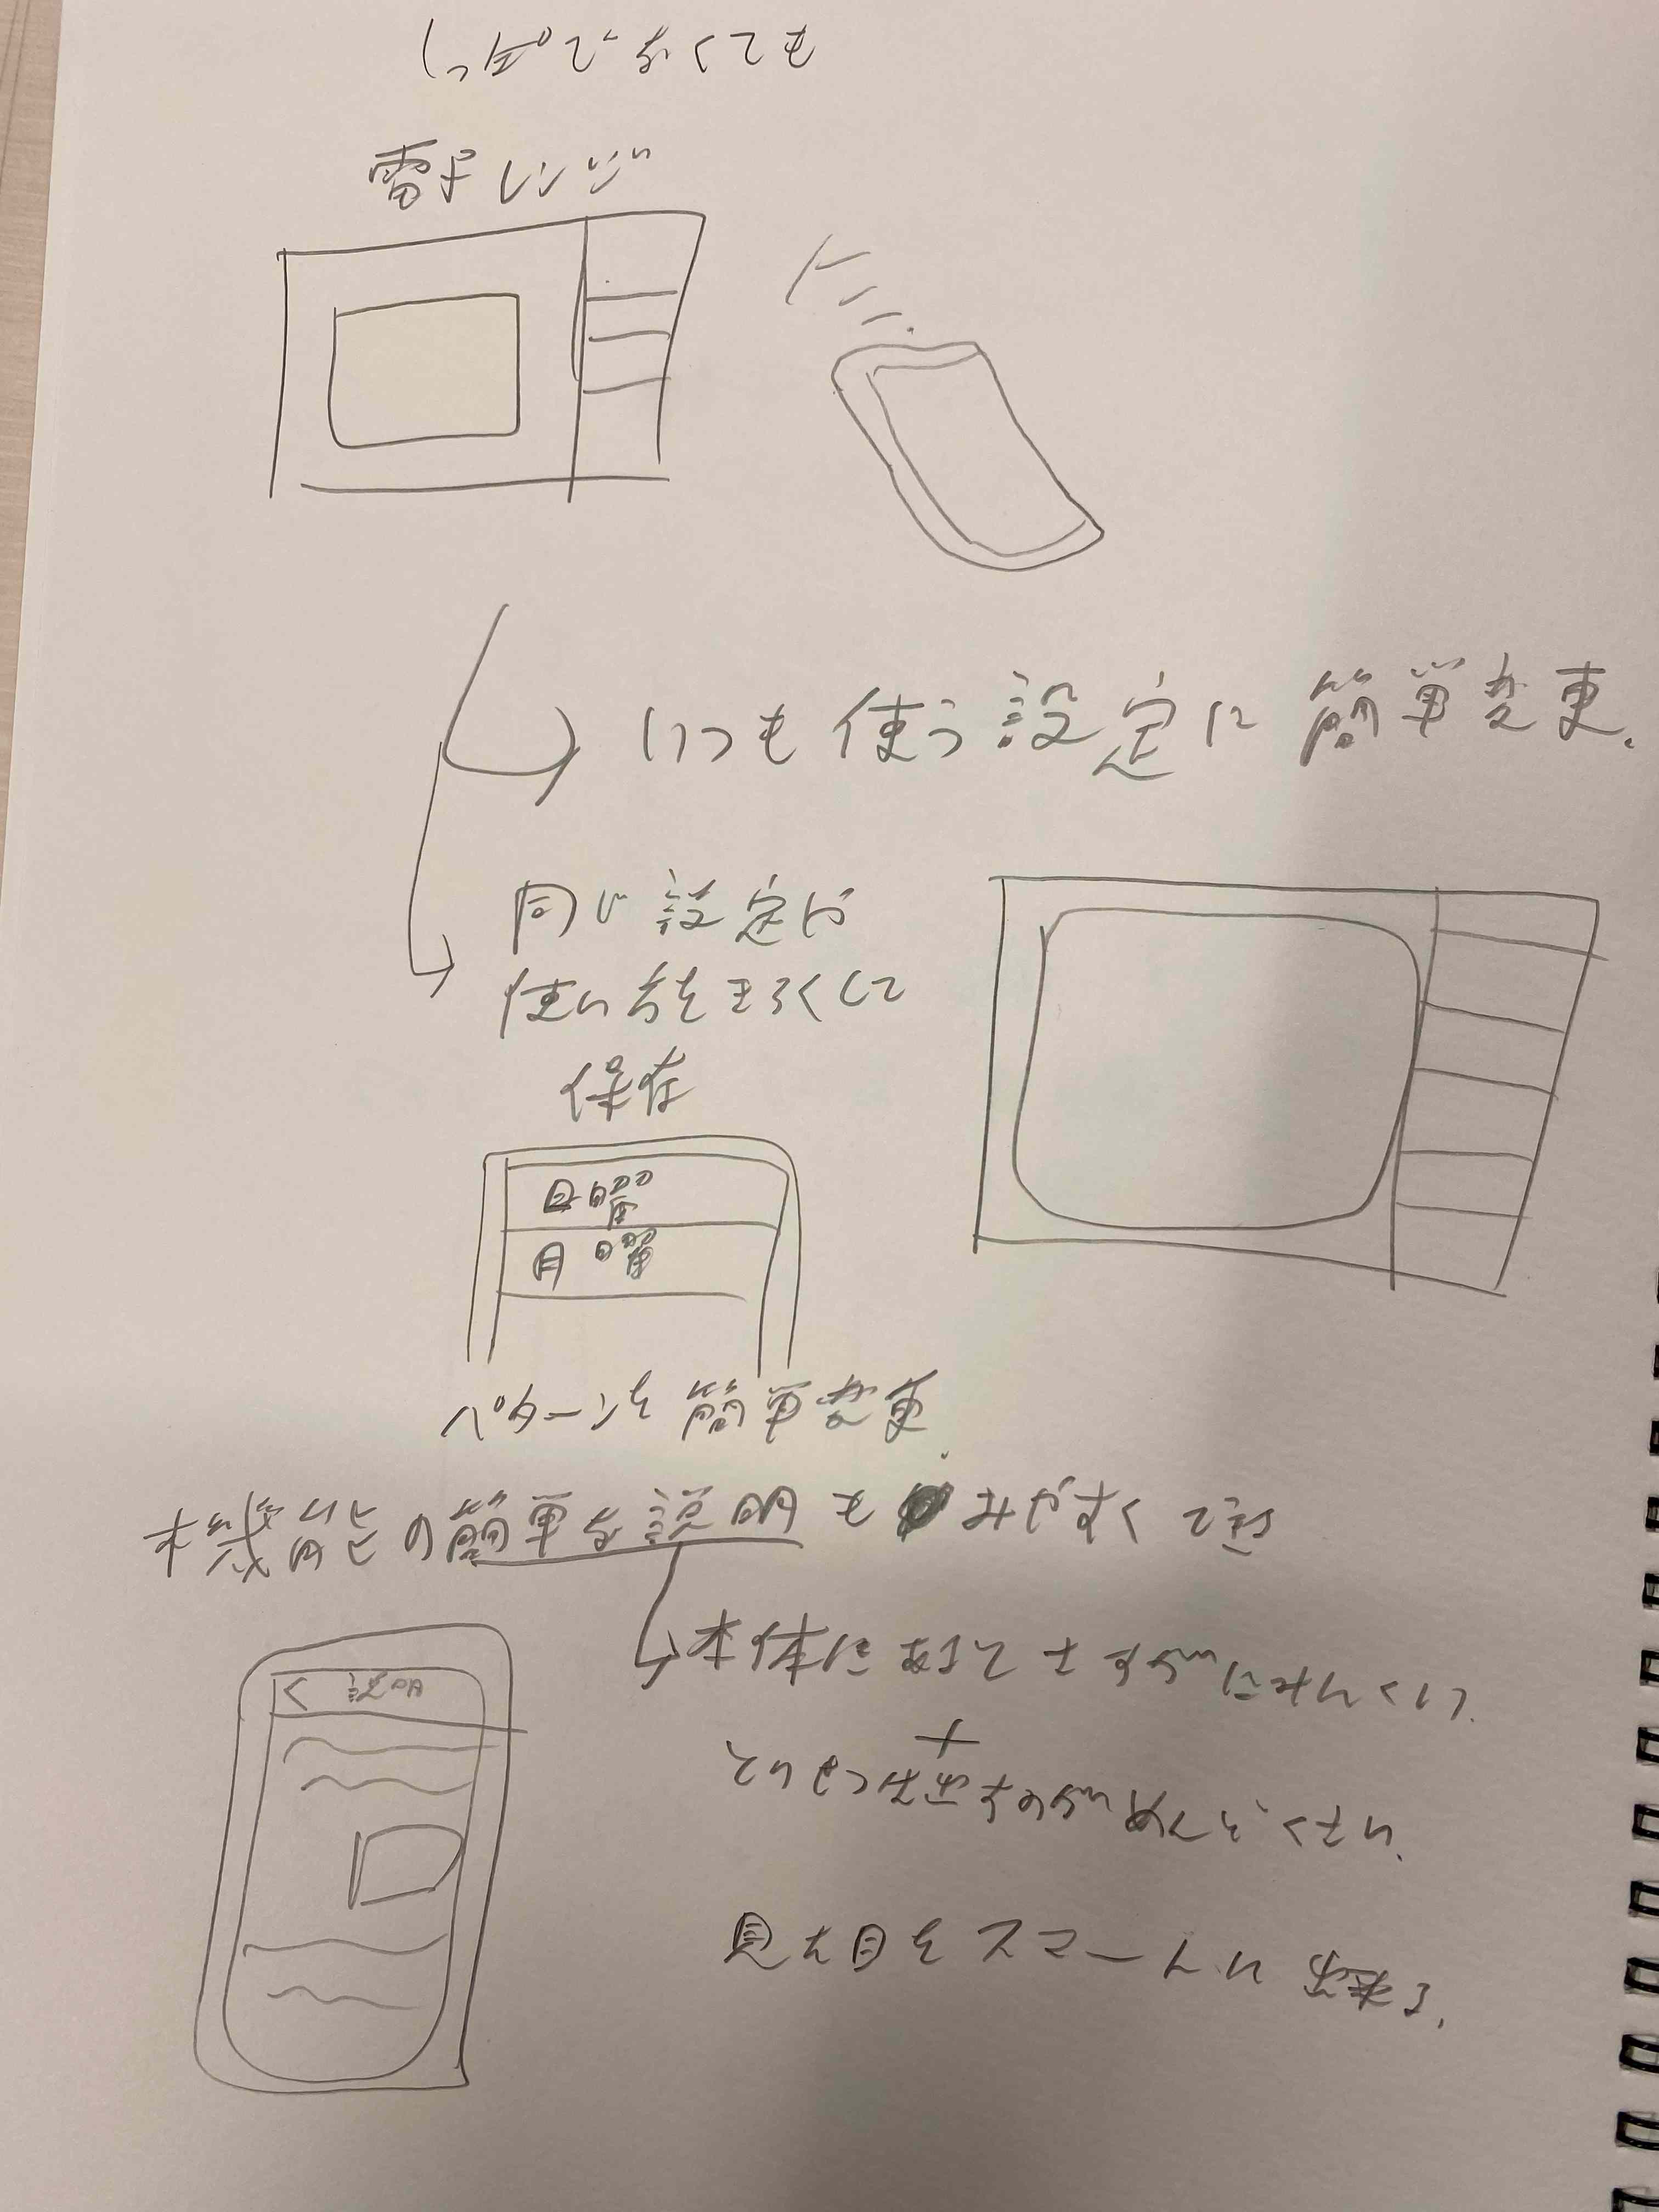 しっぽでなくても
電子レンジ
いつも使う設定に簡単変更.
同じ設定が
使い方をきろくして
保存
日曜
月曜
パターンを簡単変更.
機能の簡単な説明もみやすくでき
< 説明
本体にあるとすぐにみにくい.
+
といって
めんどくさい.
見た目をスマートに出来る.